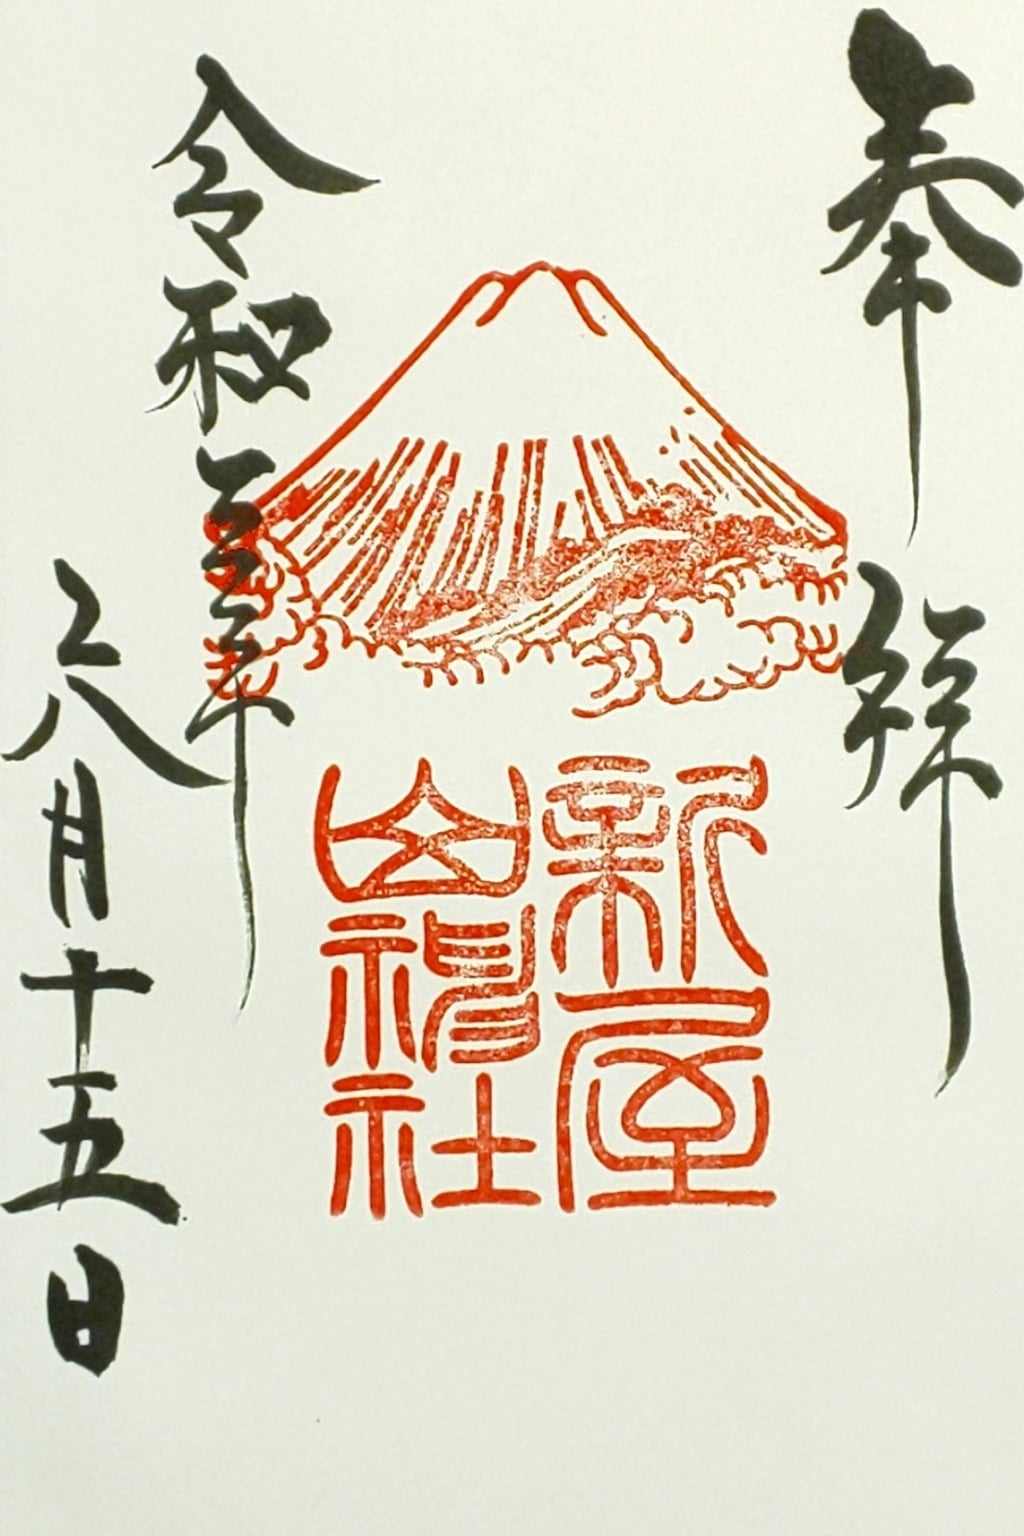 奉拝
新屋
山神社
令和三年
八月十五日